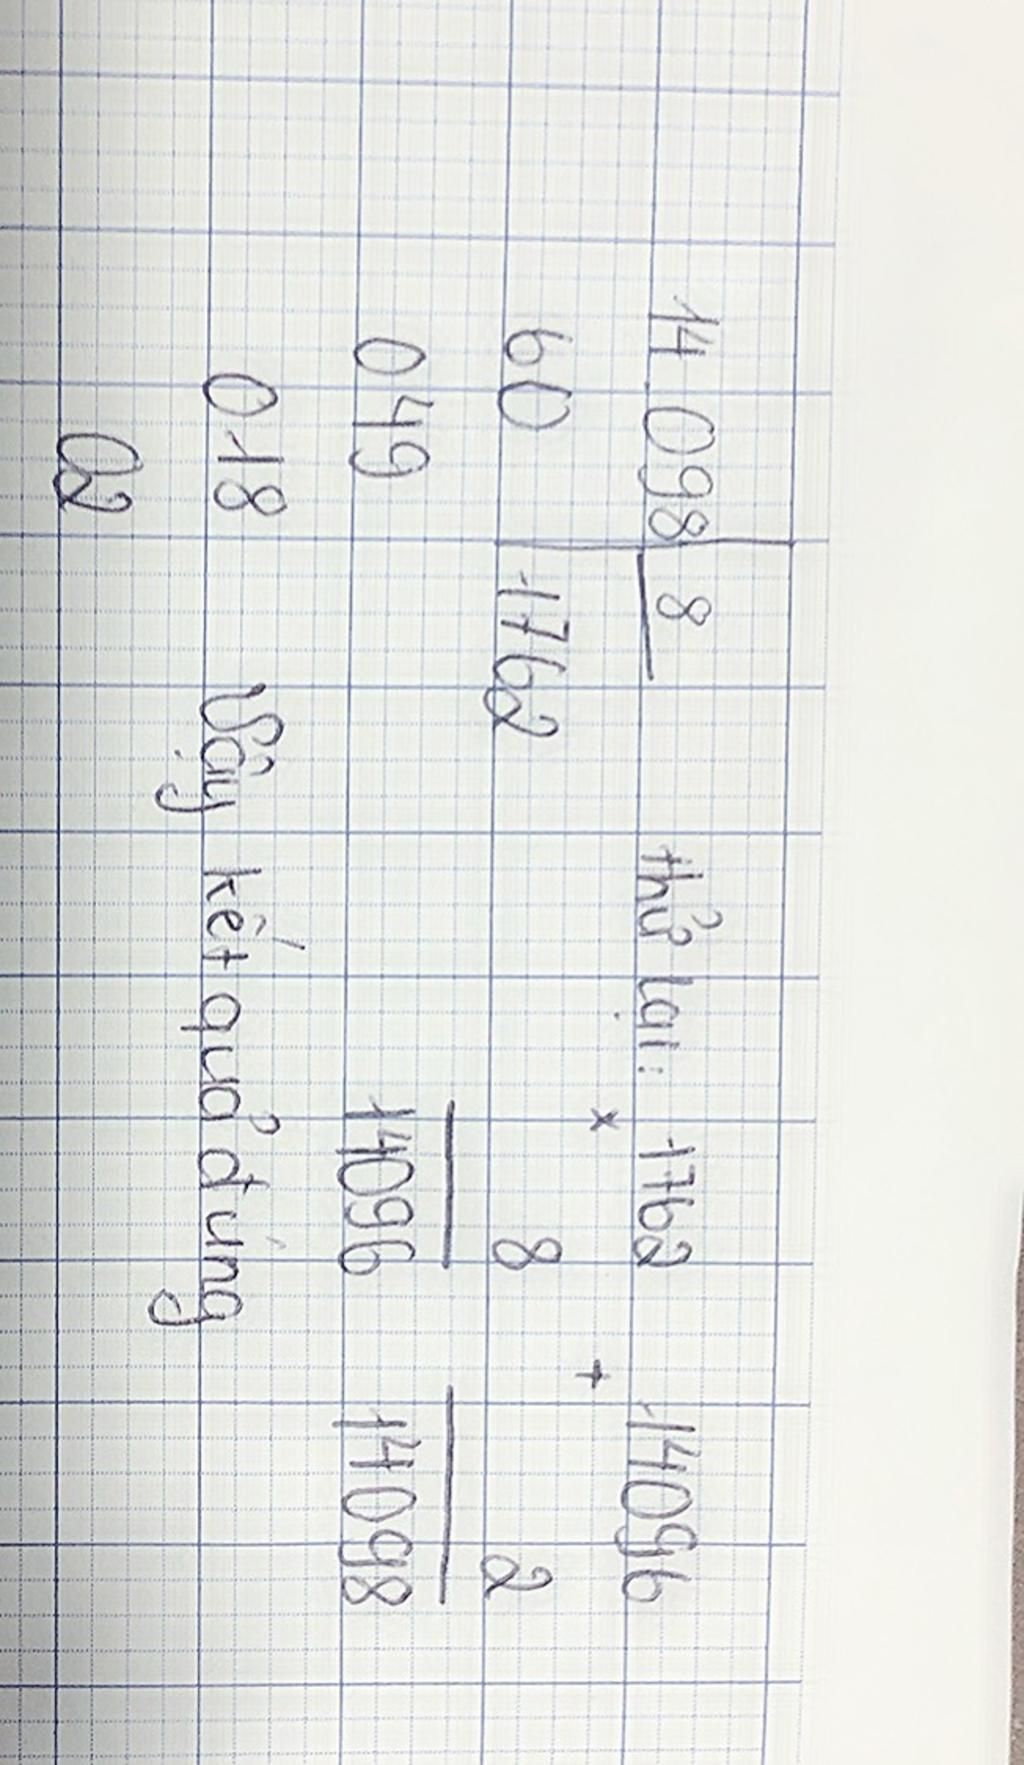 14 098 8 thử lại: 1762 14096
× +
60 1762 8 2
049 14096 14098
018 Vậy kết quả đúng
02